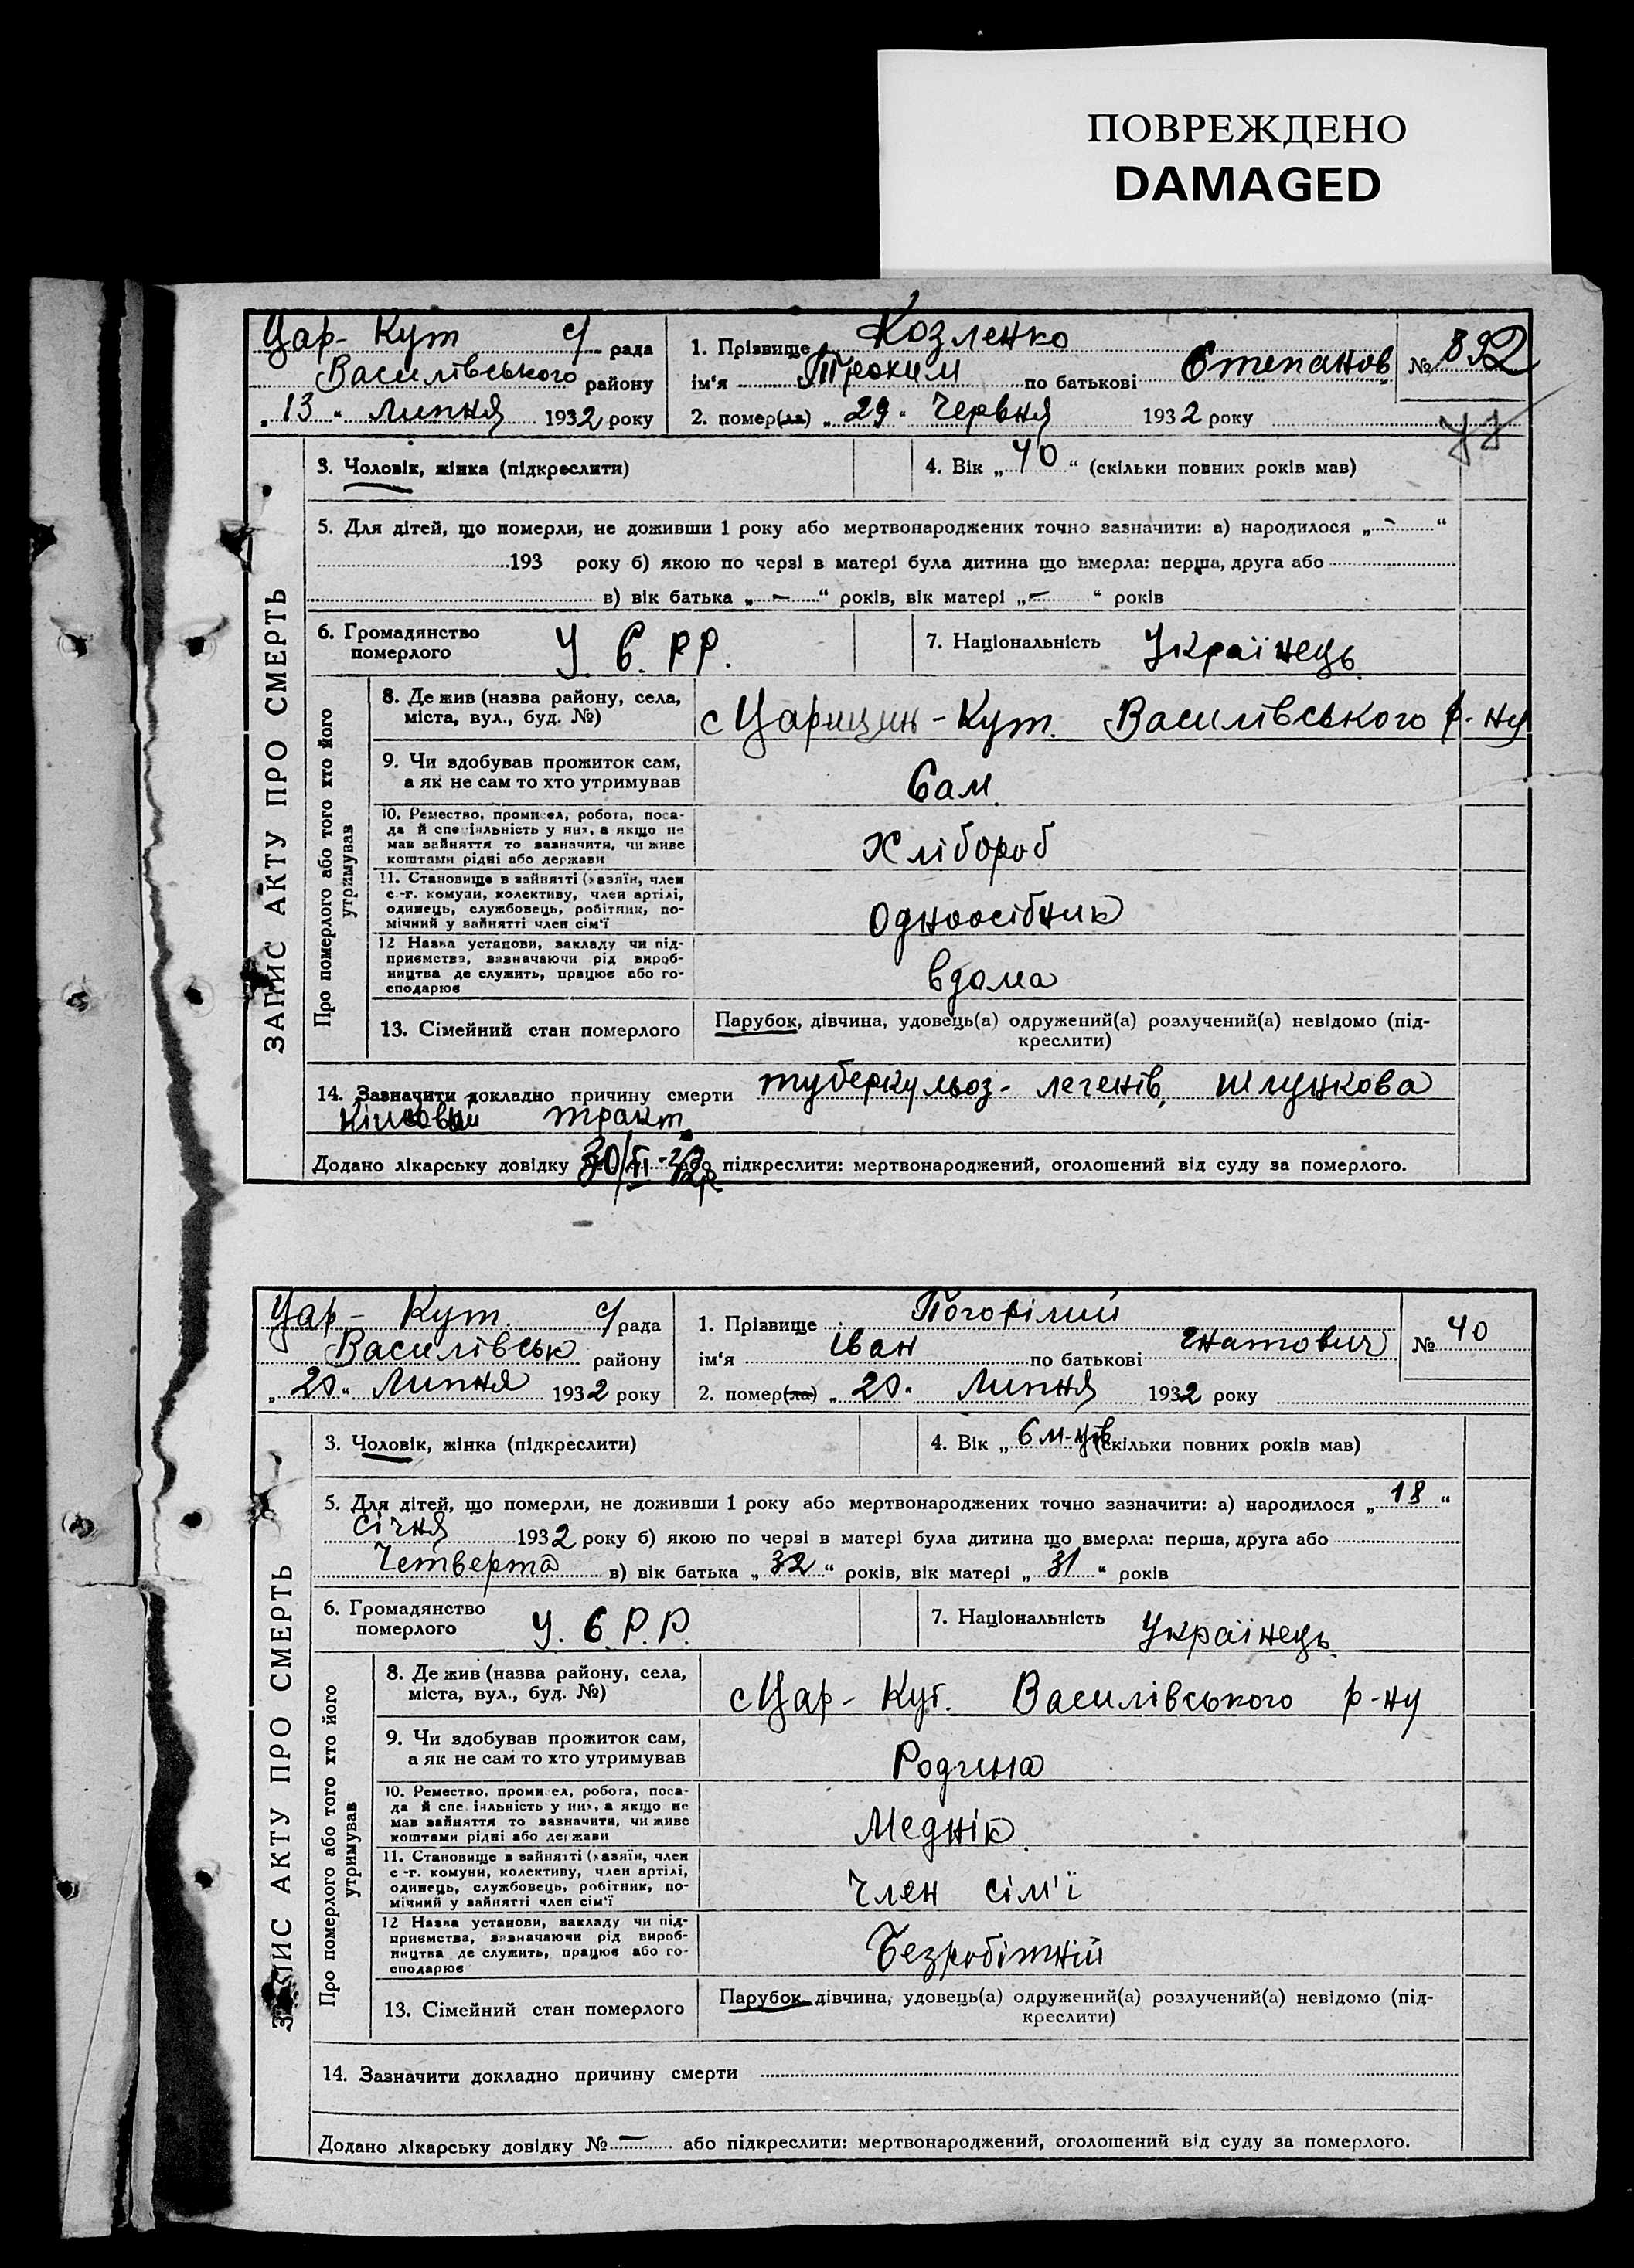 ПОВРЕЖДЕНО
DAMAGED
Цар- Кут с/ рада
Василівського району
„13“ Липня 1932 року
1. Прізвище Козленко
ім'я Трохим по батькові Степанов
2. помер(ла) „29“ Червня 1932 року
№ 892
ЗАПИС АКТУ ПРО СМЕРТЬ
3. Чоловік, жінка (підкреслити)
4. Вік „40“ (скільки повних років мав)
5. Для дітей, що померли, не доживши 1 року або мертвонароджених точно зазначити: а) народилося „-“
193 року б) якою по черзі в матері була дитина що вмерла: перша, друга або
в) вік батька „-“ років, вік матері „-“ років
6. Громадянство
померлого
У. С. РР.
7. Національність Українець
Про померлого або того хто його
утримував
8. Де жив (назва району, села,
міста, вул., буд. №)
с Царицин-Кут. Василівського р-ну
9. Чи здобував прожиток сам,
а як не сам то хто утримував
Сам.
10. Ремество, промисел, робота, поса-
да й спеціяльність у них, а якщо не
мав зайняття то зазначити, чи живе
коштами рідні або держави
Хлібороб
11. Становище в зайнятті (хазяїн, член
с.-г. комуни, колективу, член артілі,
одинець, службовець, робітник, по-
мічний у зайнятті член сім'ї
Одноосібник
12 Назва установи, закладу чи під-
приємства, зазначаючи рід вироб-
ництва де служить, працює або го-
сподарює
вдома
13. Сімейний стан померлого
Парубок, дівчина, удовець(а) одружений(а) розлучений(а) невідомо (під-
креслити)
14. Зазначити докладно причину смерти туберкульоз- легенів, шлункова
кішковый тракт.
Додано лікарську довідку 30/VI-32р. або підкреслити: мертвонароджений, оголошений від суду за померлого.
Цар- Кут. с/ рада
Василівськ району
„20“ Липня 1932 року
1. Прізвище Погорілий
ім'я Іван по батькові Гнатович
2. помер(ла) „20“ Липня 1932 року
№ 40
ЗАПИС АКТУ ПРО СМЕРТЬ
3. Чоловік, жінка (підкреслити)
4. Вік „6 м-ців (скільки повних років мав)
5. Для дітей, що померли, не доживши 1 року або мертвонароджених точно зазначити: а) народилося „18“
Січня 1932 року б) якою по черзі в матері була дитина що вмерла: перша, друга або
Четверта в) вік батька „32“ років, вік матері „31“ років
6. Громадянство
померлого
У. С. Р. Р.
7. Національність Українець
Про померлого або того хто його
утримував
8. Де жив (назва району, села,
міста, вул., буд. №)
с Цар- Кут. Василівського р-ну
9. Чи здобував прожиток сам,
а як не сам то хто утримував
Родина
10. Ремество, промисел, робота, поса-
да й спеціяльність у них, а якщо не
мав зайняття то зазначити, чи живе
коштами рідні або держави
Меднік
11. Становище в зайнятті (хазяїн, член
с.-г. комуни, колективу, член артілі,
одинець, службовець, робітник, по-
мічний у зайнятті член сім'ї
Член сім'ї
12 Назва установи, закладу чи під-
приємства, зазначаючи рід вироб-
ництва де служить, працює або го-
сподарює
Безробітній
13. Сімейний стан померлого
Парубок, дівчина, удовець(а) одружений(а) розлучений(а) невідомо (під-
креслити)
14. Зазначити докладно причину смерти
Додано лікарську довідку № - або підкреслити: мертвонароджений, оголошений від суду за померлого.